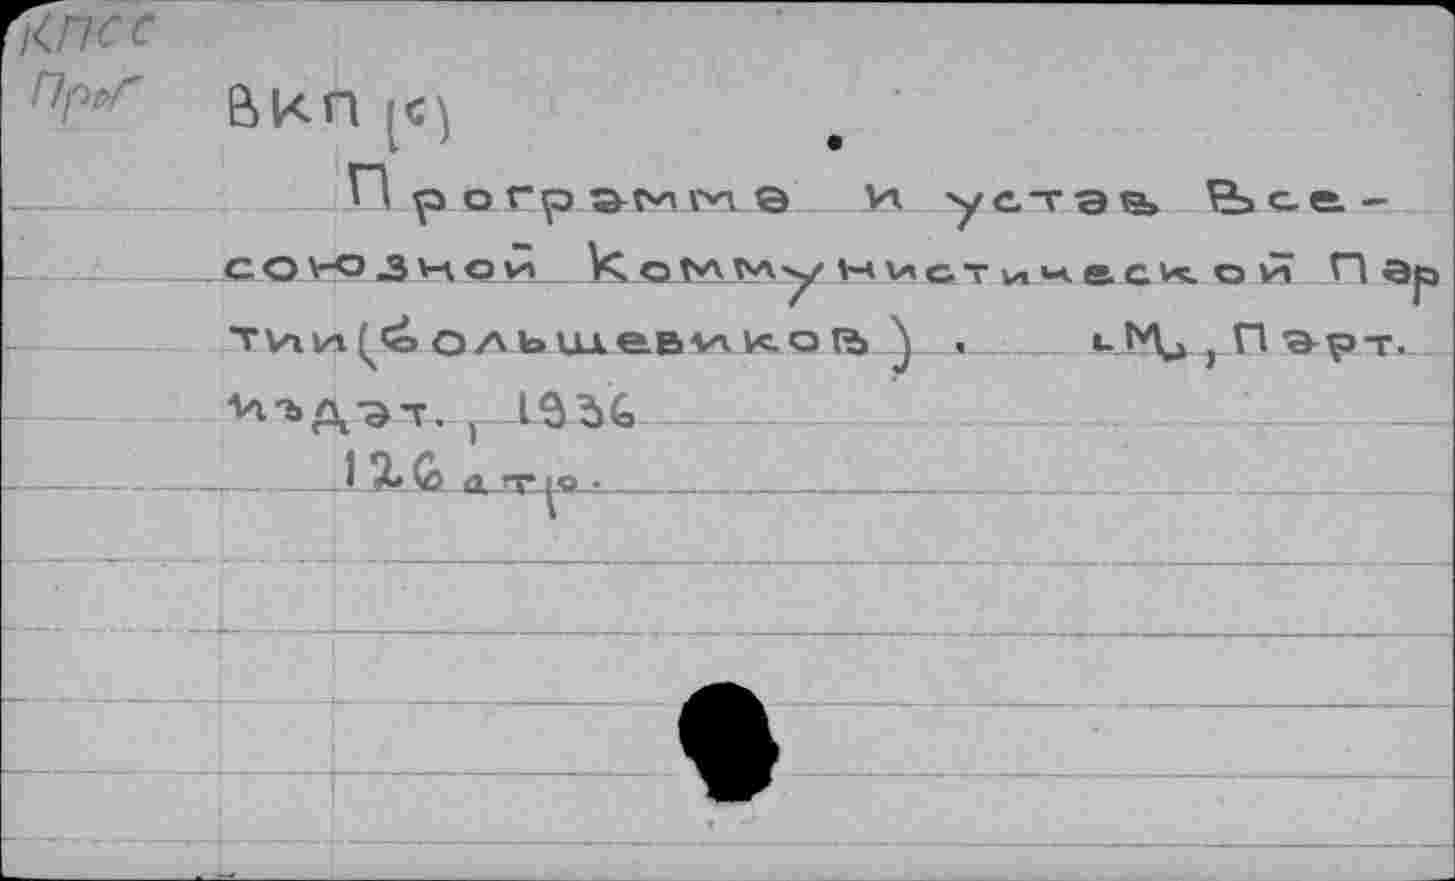 КПСС
Прог
ВКП(б)
Программа и устав Все-
союзной Коммунистической Пар
тии (большевиков). М., Парт.
издат., 1936
126 стр.